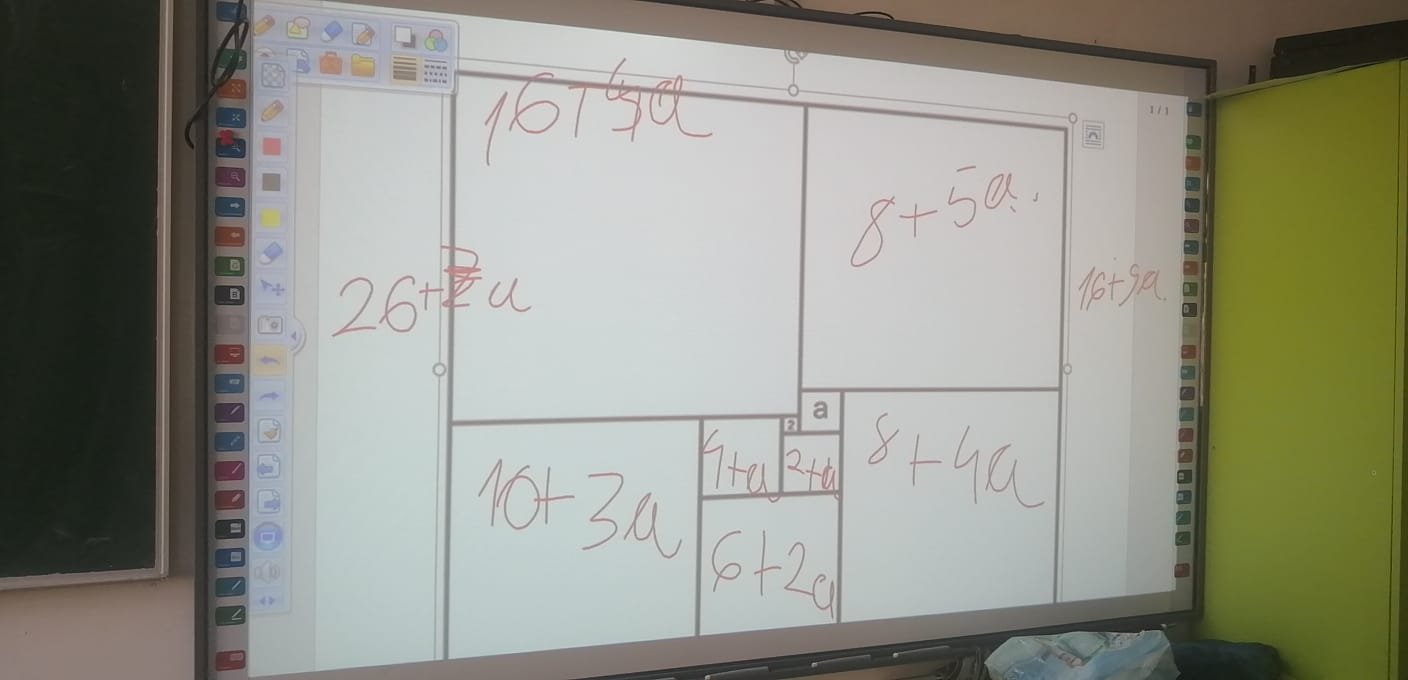 1/1
16+4a
8+5a.
26+7a
16+9a.
a
2
4+a
2+a
8+4a
10+3a
6+2a